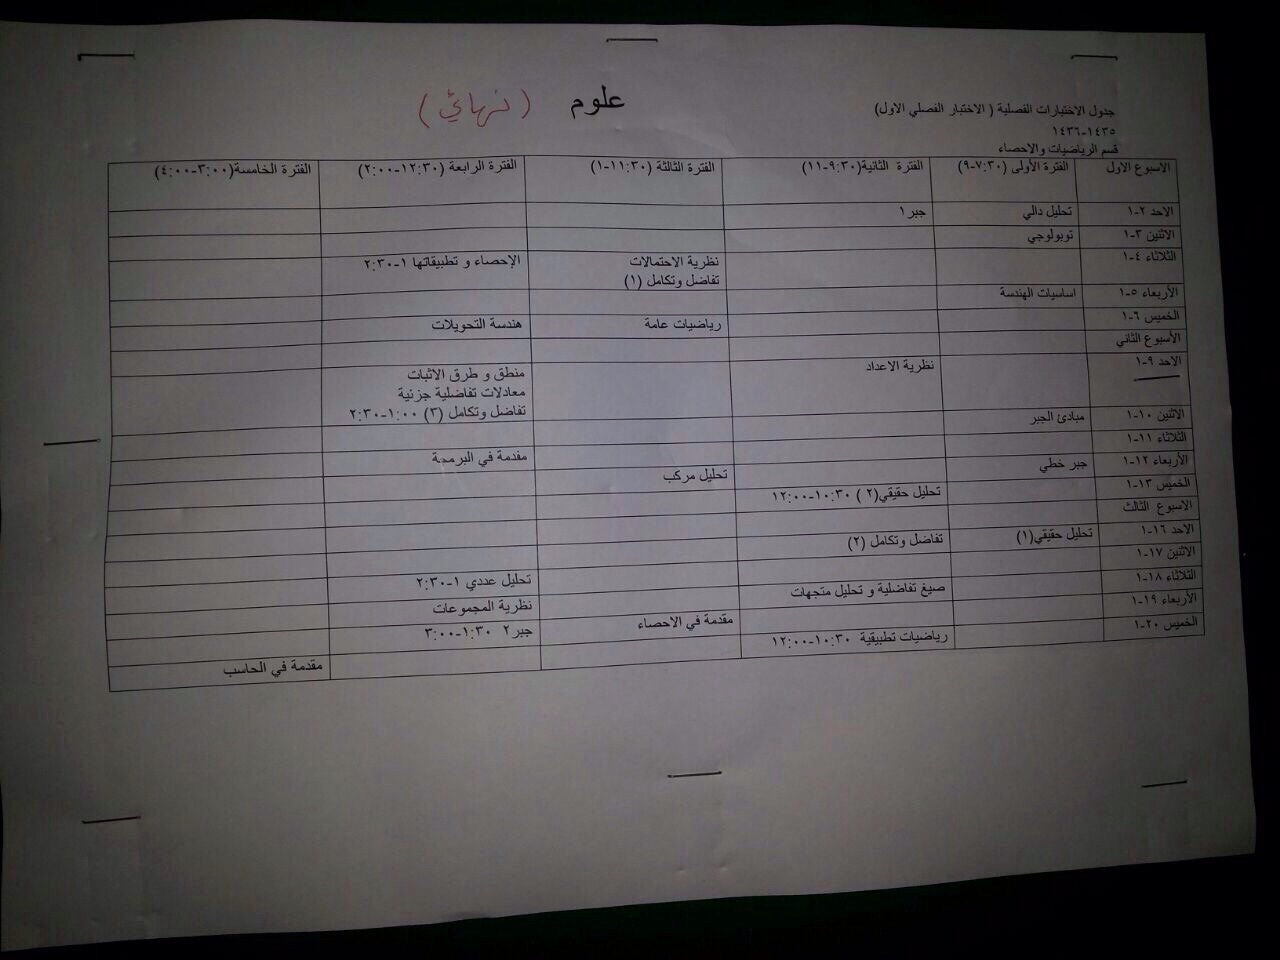 علوم (نهائي)
جدول الاختبارات الفصلية ( الاختبار الفصلي الاول)
١٤٣٥-١٤٣٦
قسم الرياضيات والاحصاء
الاسبوع الاول الفترة الأولى (٧:٣٠-٩) الفترة الثانية(٩:٣٠-١١) الفترة الثالثة (١١:٣٠-١) الفترة الرابعة (١٢:٣٠-٢:٠٠) الفترة الخامسة(٣:٠٠-٤:٠٠)
الاحد ٢-١ تحليل دالي جبر١
الاثنين ٣-١ توبولوجي
الثلاثاء ٤-١ نظرية الاحتمالات الإحصاء و تطبيقاتها ١-٢:٣٠
تفاضل وتكامل (١)
الأربعاء ٥-١ اساسيات الهندسة
الخميس ٦-١ رياضيات عامة هندسة التحويلات
الأسبوع الثاني
الاحد ٩-١ نظرية الاعداد منطق و طرق الاثبات
معادلات تفاضلية جزئية
تفاضل وتكامل (٣) ١:٠٠-٢:٣٠
الاثنين ١٠-١ مبادئ الجبر
الثلاثاء ١١-١ مقدمة في البرمجة
الأربعاء ١٢-١ جبر خطي تحليل مركب
الخميس ١٣-١ تحليل حقيقي(٢ ) ١٠:٣٠-١٢:٠٠
الاسبوع الثالث
الاحد ١٦-١ تحليل حقيقي(١) تفاضل وتكامل (٢)
الاثنين ١٧-١ تحليل عددي ١-٢:٣٠
الثلاثاء ١٨-١ صيغ تفاضلية و تحليل متجهات نظرية المجموعات
الأربعاء ١٩-١ مقدمة في الاحصاء جبر٢ ١:٣٠-٣:٠٠
الخميس ٢٠-١ رياضيات تطبيقية ١٠:٣٠-١٢:٠٠
مقدمة في الحاسب